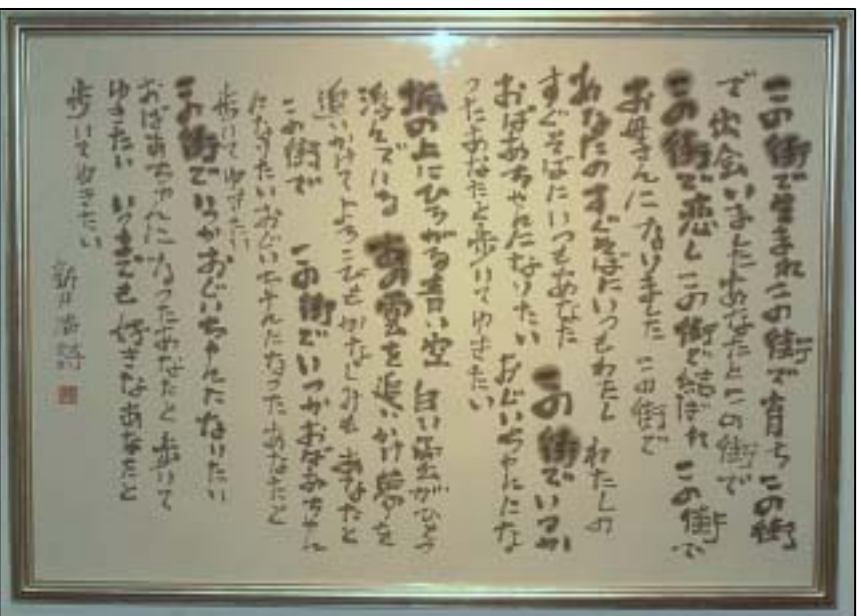 この街で生まれこの街で育ちこの街
で出会いましたあなたとこの街で
この街で恋しこの街で結ばれ この街で
お母さんになりました この街で
あなたのすぐそばにいつもわたし わたしの
すぐそばにいつもあなた この街でいつか
おばあちゃんになりたい おじいちゃんにな
ったあなたと歩いてゆきたい
坂の上にひろがる青い空 白い雲がひとつ
浮んでいる あの雲を追いかけ夢を
追いかけてよろこびもかなしみも あなたと
この街で この街でいつかおばあちゃん
になりたいおじいちゃんになったあなたと
歩いてゆきたい
この街でいつかおじいちゃんになりたい
おばあちゃんになったあなたと歩いて
ゆきたい いつまでも好きなあなたと
歩いてゆきたい
新井満